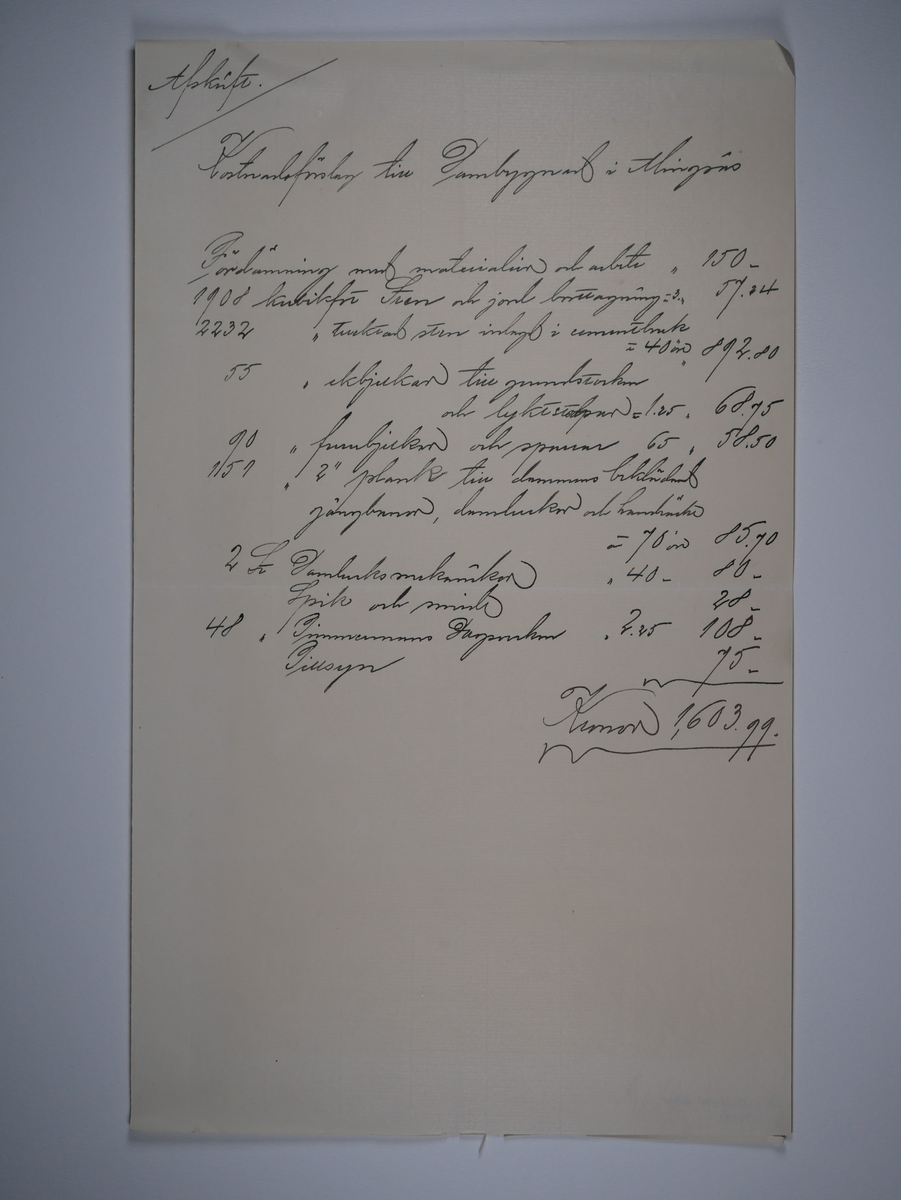 Afskrift.
Kostnadsförslag till Dambyggnad i Alingsås
Fördämning med materialier och arbete " 150 –
1908 kubikfot Sten och jord borttagning = 3 " 57.24
2232 " tuktad sten inlagd i cementbruk
= 40 öre " 892.80
55 " ekbjelkar till grundstockar
och lyktstolpar = 1.25 " 68.75
90 " furubjelkar och sparrar 65 " 58.50
151 " 2" plank till dammens beklädnad
gångbanor, damluckor och handräcke
= 70 öre 85.70
2 St Damlucksmekaniker " 40 – 80 –
Spik och smide 28 –
48 " Timmermans Dagsverken " 2.25 108 –
Tillsyn 75 –
Kronor 1,603.99.